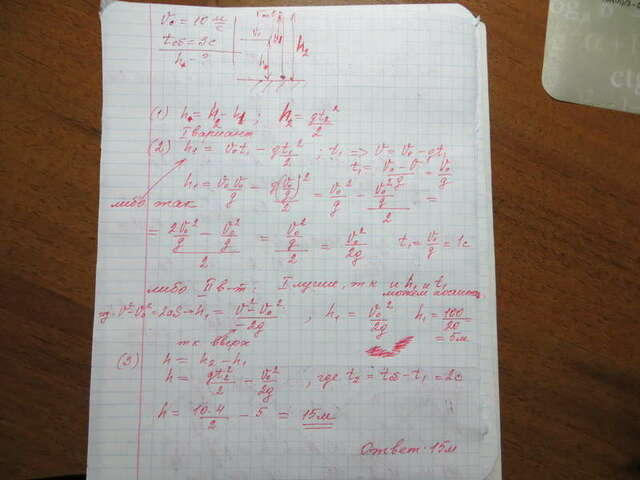 v₀ = 10 м/с
tоб = 3с
h - ?
h₂
(1) h = h₂ - h₁ ; h₂ = gt₂²/2
I вариант
(2) h₁ = v₀t₁ - gt₁²/2 ; t₁ => v = v₀ - gt₁
t₁ = v₀ - v/g = v₀/g
h₁ = v₀ v₀/g - g(v₀/g)²/2 = v₀²/g - v₀²/g/2 =
либо так
= 2v₀²/g - v₀²/g/2 = v₀²/g/2 = v₀²/2g t₁ = v₀/g = 1с
либо II в-т: I лучше, т.к и h₁ и t₁
можем
v² - v₀² = 2aS → h₁ = v² - v₀²/-2g ; h₁ = v₀²/2g h₁ = 100/20 = 5м
тк вверх
(3) h = h₂ - h₁
h = gt₂²/2 - v₀²/2g , где t₂ = tоб - t₁ = 2с
h = 10·4/2 - 5 = 15м
Ответ: 15м